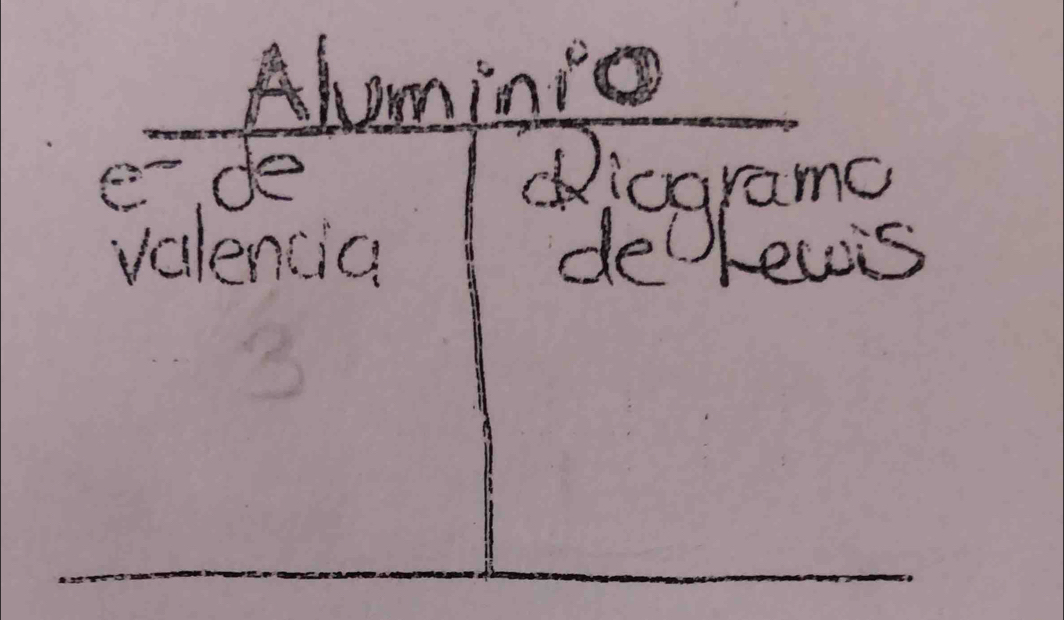 Aluminio
e- de
valencia
Diagrama
de Lewis
3